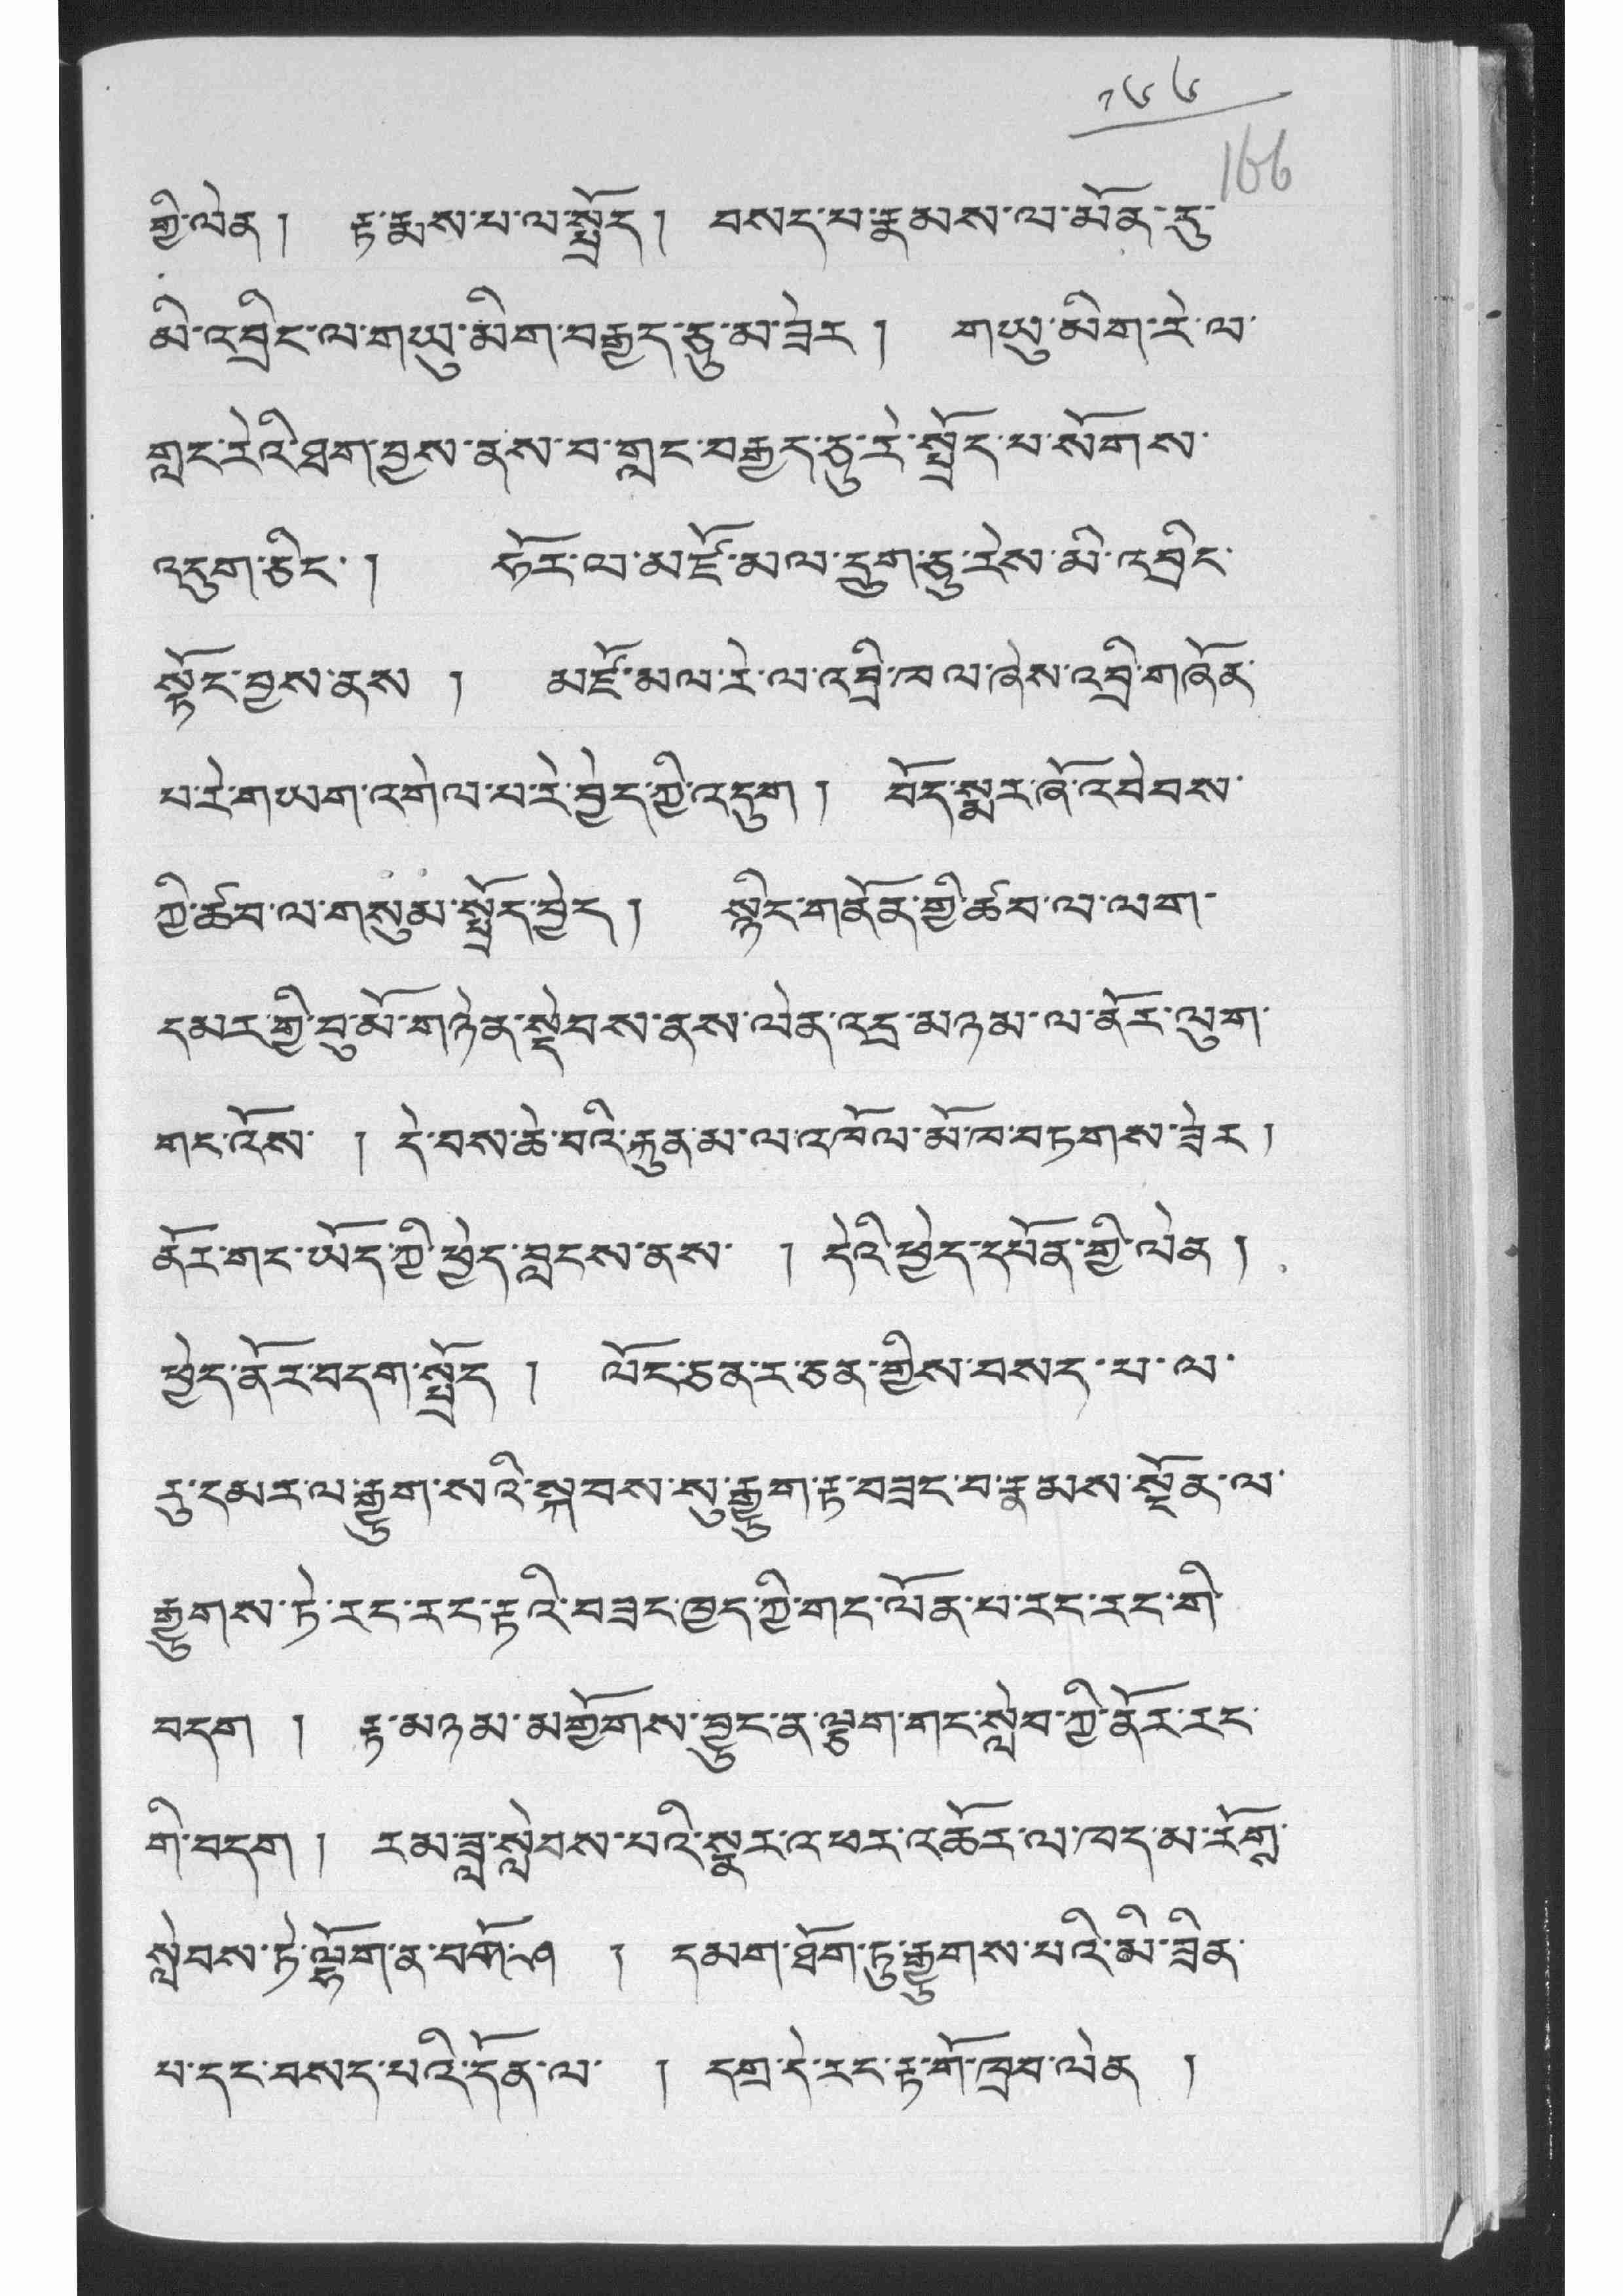 ༡༦༦
166
གྱི་ལེན། རྟ་རྨས་པ་ལ་སྤྲོད། བསད་པ་རྣམས་ལ་མོན་དུ་
མི་འབྲིང་ལ་གཡུ་མིག་བརྒྱད་ཅུ་མ་ཟེར། གཡུ་མིག་རེ་ལ་
གླང་རེའི་ཐག་བྱས་ནས་བ་གླང་བརྒྱད་ཅུ་རེ་སྤྲོད་པ་སོགས་
འདུག་ཅིང་། ཧོར་ལ་མཛོ་མལ་དྲུག་ཅུ་རེས་མི་འབྲིང་
སྟོང་བྱས་ནས། མཛོ་མལ་རེ་ལ་འབྲི་ཁལ་ཞེས་འབྲི་གཞོན་
པ་རེ་གཡག་འགེལ་པ་རེ་བྱེད་ཀྱི་འདུག། བོད་སྨར་ཞོ་འབེབས་
ཀྱི་ཚབ་ལ་གསུམ་སྤྲོད་བྱེད། སྙིང་གནོན་གྱི་ཚབ་ལ་ལག་
དམར་གྱི་བུ་མོ་གཉེན་སྡེབས་ནས་ལེན་འདྲ་མཉམ་ལ་ནོར་ལུག་
གང་འོས་། དེ་བས་ཆེ་བའི་རྐུན་མ་ལ་འཁོལ་མོ་ཁ་བཏགས་ཟེར།
ནོར་གང་ཡོད་ཀྱི་ཕྱེད་བླངས་ནས་། དེའི་ཕྱེད་དཔོན་གྱི་ལེན།
ཕྱེད་ནོར་བདག་སྤྲོད། ལོང་ཅན་ར་ཅན་གྱིས་བསད་པ་ལ་
དུ་དམར་ལ་རྒྱུག་སའི་སྐབས་སུ་རྒྱུག་རྟ་བཟང་བ་རྣམས་སྔོན་ལ་
རྒྱུགས་ཏེ་རང་རང་རྟའི་བཟང་ཁྱད་ཀྱི་གང་ལོན་པ་རང་རང་གི་
བདག། རྟ་མཉམ་མགྱོགས་བྱུང་ན་ལྕག་གང་སླེབ་ཀྱི་ནོར་རང་
གི་བདག། རམ་ཟླ་སླེབས་པའི་སྔར་འཕར་འཆོར་ལ་ཁད་མ་
སླེབས་ཏེ་ལྷོག་ན་བགོ་ཤ། དམག་ཐོག་ཏུ་རྒྱུགས་པའི་མི་ཟིན་
པ་དང་བསད་པའི་དོན་ལ་། དགྲ་དེ་རང་རྟ་གོ་ཁྲབ་ལེན།